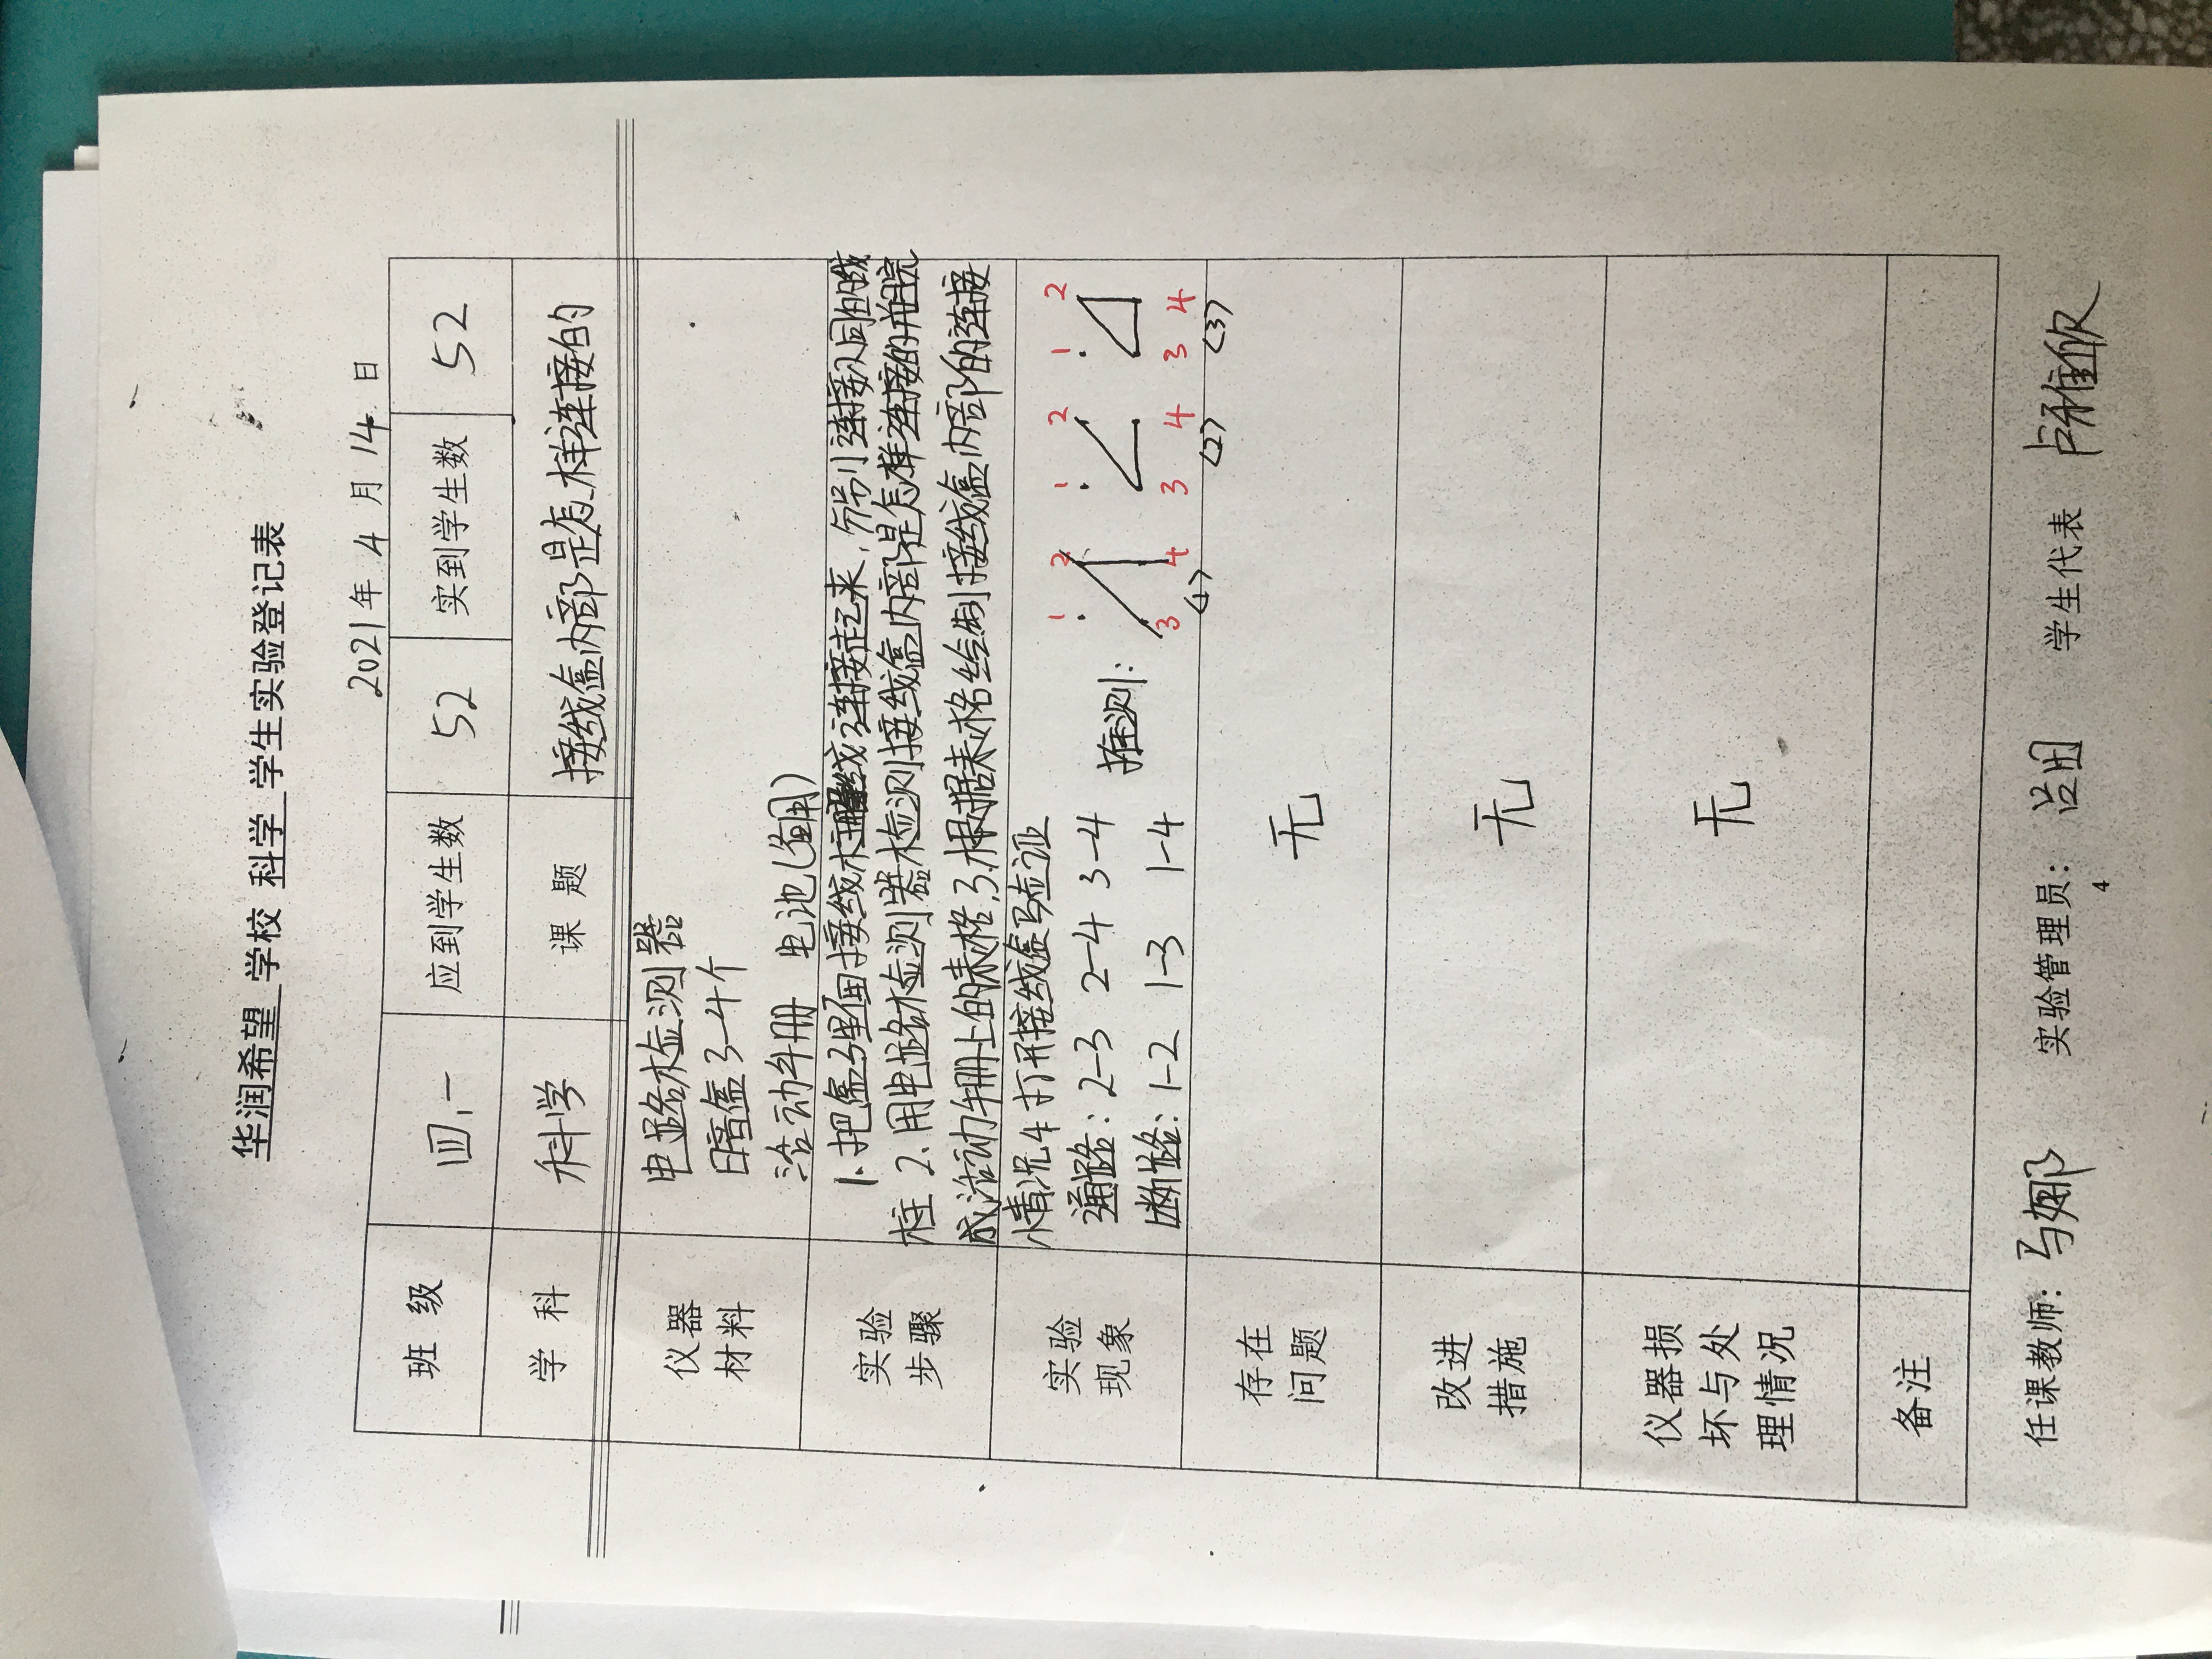 华润希望 学校 科学 学生实验登记表
2021年 4 月 14 日
班 级 四.一 应到学生数 52 实到学生数 52
学 科 科学 课 题 接线盒内部是怎样连接的
仪器
材料
电路检测器
暗盒3-4个
活动手册 电池(
实验
步骤
1.把盒子里面接线柱用线连接起来,分别连接不同的线
柱 2.用电路检测器检测接线盒内部是怎样连接的并完
成活动手册上的表格,3.根据表格绘制接线盒内部的连接
情况4打开接线盒验证
实验
现象
通路:2-3 2-4 3-4
断路:1-2 1-3 1-4
推测:
1 2
3 4
(1)
1 2
3 4
(2)
1 2
3 4
(3)
存在
问题
无
改进
措施
无
仪器损
坏与处
理情况
无
备注
任课教师: 马娜 实验管理员: 吕团 学生代表 卢雅欣
4